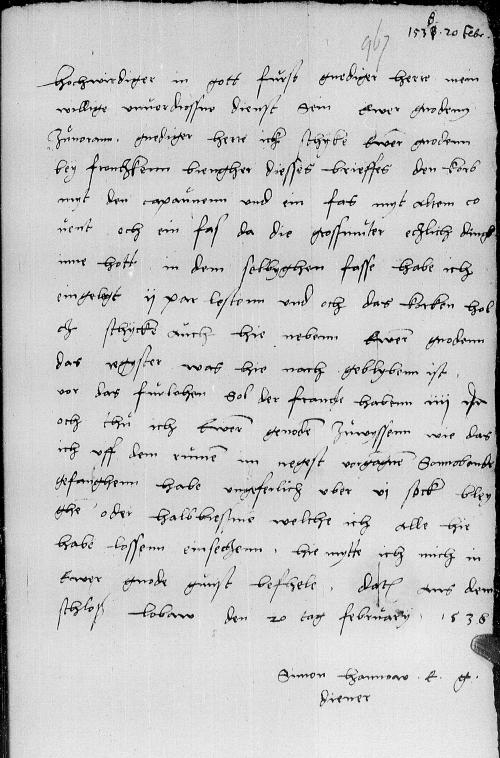 1538. 20 Febr.
967
Hochwirdiger in gott furst gnediger herre mein
willige unvordrossne dienst Sein Ewer gnoden
Zuvorann. gnediger herre ich schycke Ewer gnodenn
bey frantzkenn briengher diesses brieffes den korb
myt den capaunenn und ein fas myt altem co
vent och ein fas da die grossmuter etzlich dingk
inne hott in dem selbyghen fasse habe ich
eingelegt ii par lestenn und och das kocken hol
tz schycke auch hie nebenn Ewer gnodenn
das regyster was hie nach geblybenn ist.
vor das furlohen Sol der francke habenn iiii
och thu ich Ewer gnoden zuwyssenn wie das
ich uff dem rumen im negest vorgagne Sonnobende
gefanghenn habe ungeferlich uber vi schock bley
ghe oder halbbressme welche ich alle hie
habe lossenn einsetzenn. hie mytte ich mich in
Ewer gnode gunst befhele. Dat aus dem
schlos lobaw den 20 tag february. 1538
Simon Hannow. E. g.
diener